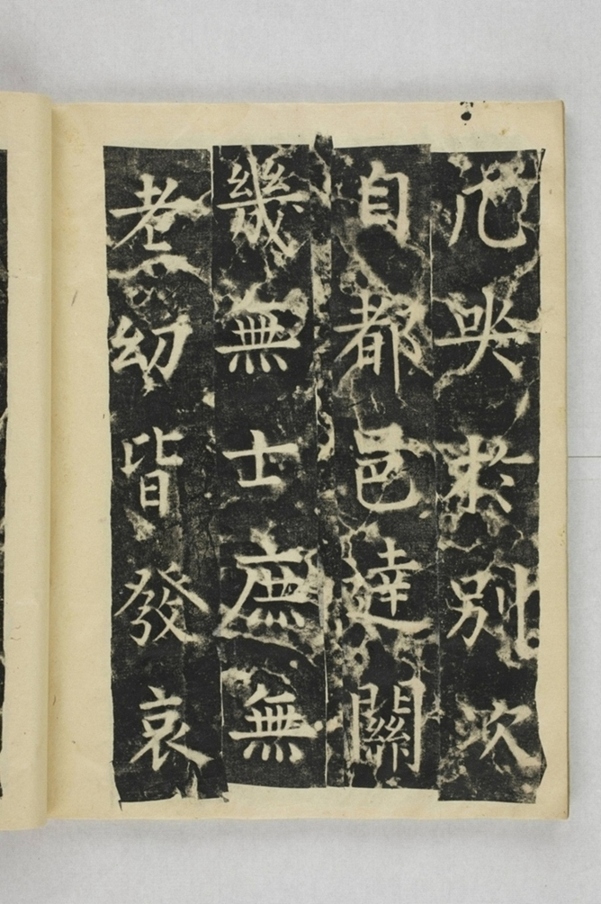 哭求別次
自都邑達關
畿無士庶無
老幼皆發哀